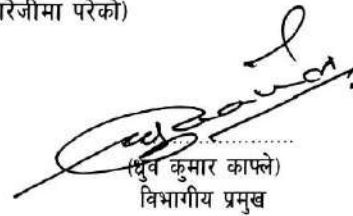 रेजीमा परेको)
(ध्रुव कुमार काफ्ले)
विभागीय प्रमुख